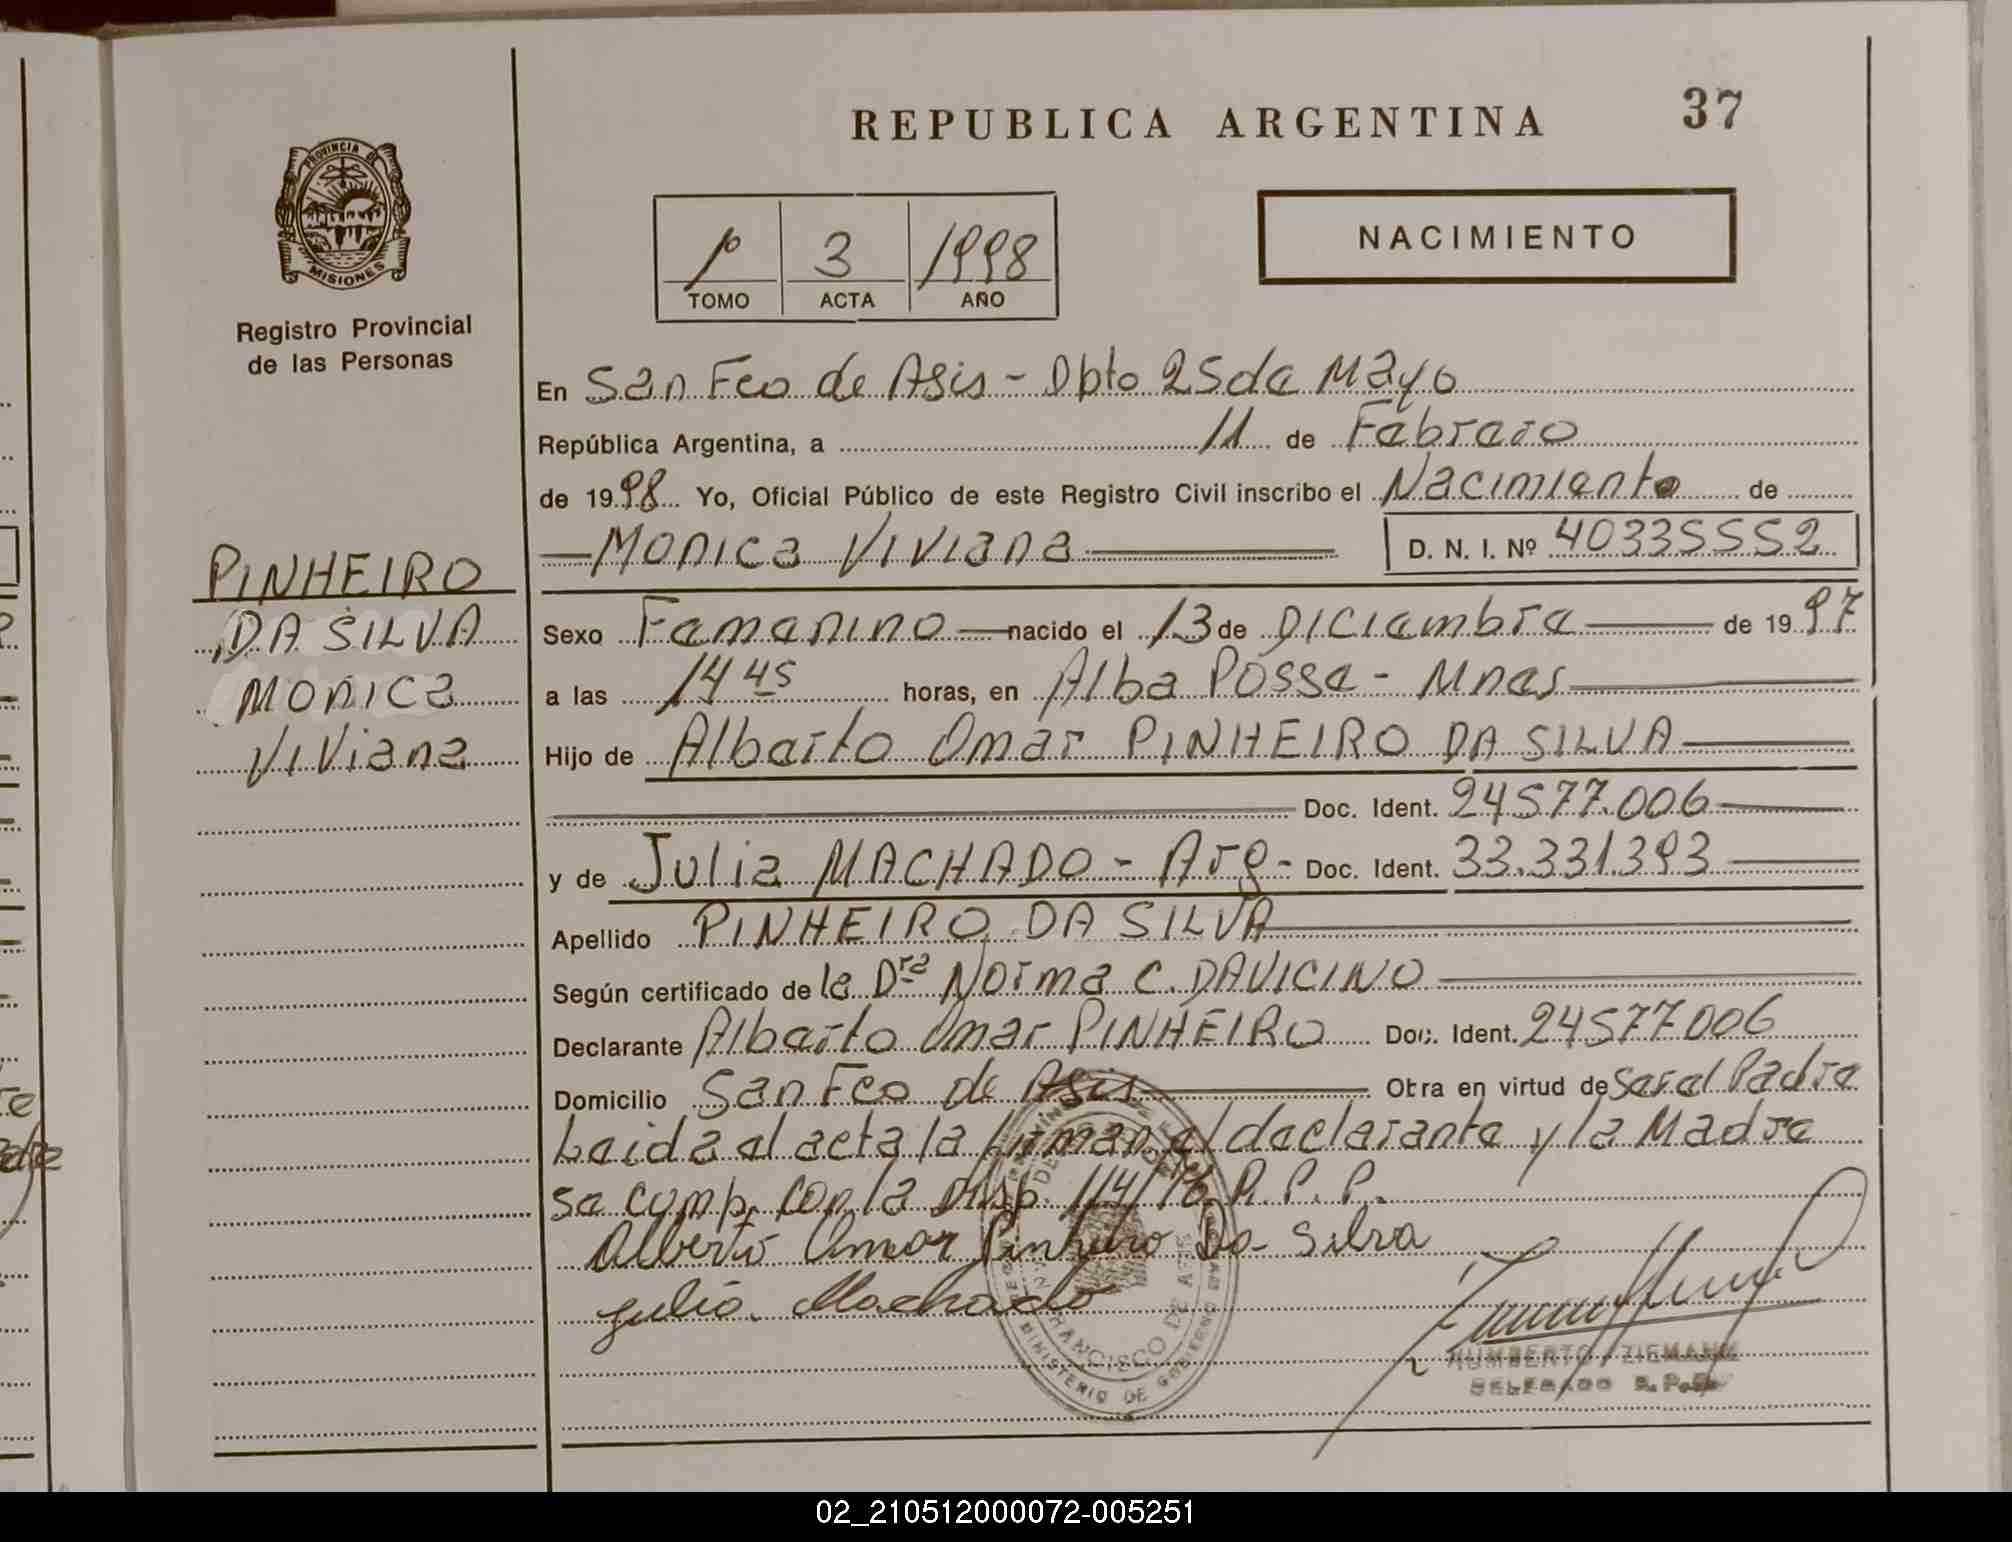 REPUBLICA ARGENTINA
37
PROVINCIA DE
MISIONES
Registro Provincial
de las Personas
1º 3 1998
TOMO ACTA AÑO
NACIMIENTO
En San Fco de Asis - Dpto 25 de Mayo
República Argentina, a 11 de Febrero
de 1998 Yo, Oficial Público de este Registro Civil inscribo el Nacimiento de
Monica Viviana D. N. I. Nº 40335552
PINHEIRO
DA SILVA
Monica
Viviana
Sexo Femenino nacido el 13 de Diciembre de 1997
a las 14 45 horas, en Alba Posse - Mnes
Hijo de Alberto Omar PINHEIRO DA SILVA
Doc. Ident. 24577.006
y de Julia MACHADO - Arg - Doc. Ident. 33.331.393
Apellido PINHEIRO DA SILVA
Según certificado de la Dra Norma C. DAVICINO
Declarante Alberto Omar PINHEIRO Doc. Ident. 24577006
Domicilio San Fco de Asis Obra en virtud de ser el Padre
Leida el acta la firman el declarante y la Madre
se cump. con la Disp. 114/76 R. P. P.
Alberto Omar Pinheiro Da Silva
Julia Machado
MINISTERIO DE GOBIERNO
FRANCISCO DE ASIS
HUMBERTO ZIEMANN
DELEGADO R.P.P.
02_210512000072-005251